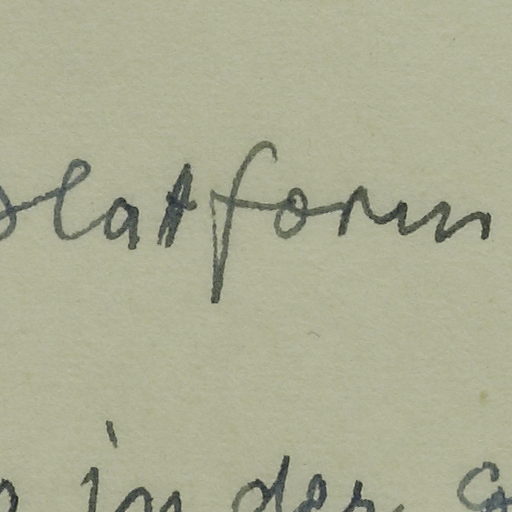 platform
in der